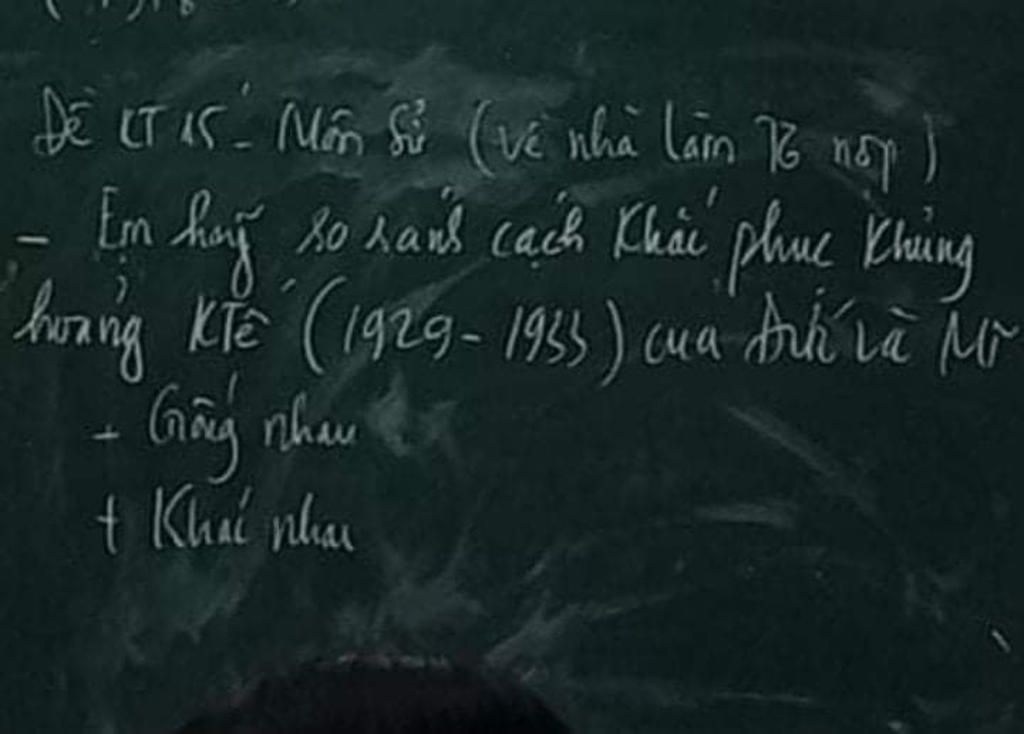 Đề KT 15' - Môn Sử (về nhà làm nộp)
- Em hãy so sánh cách khắc phục khủng
hoảng KTế (1929 - 1933) của Anh và Mĩ
- Giống nhau
+ Khác nhau